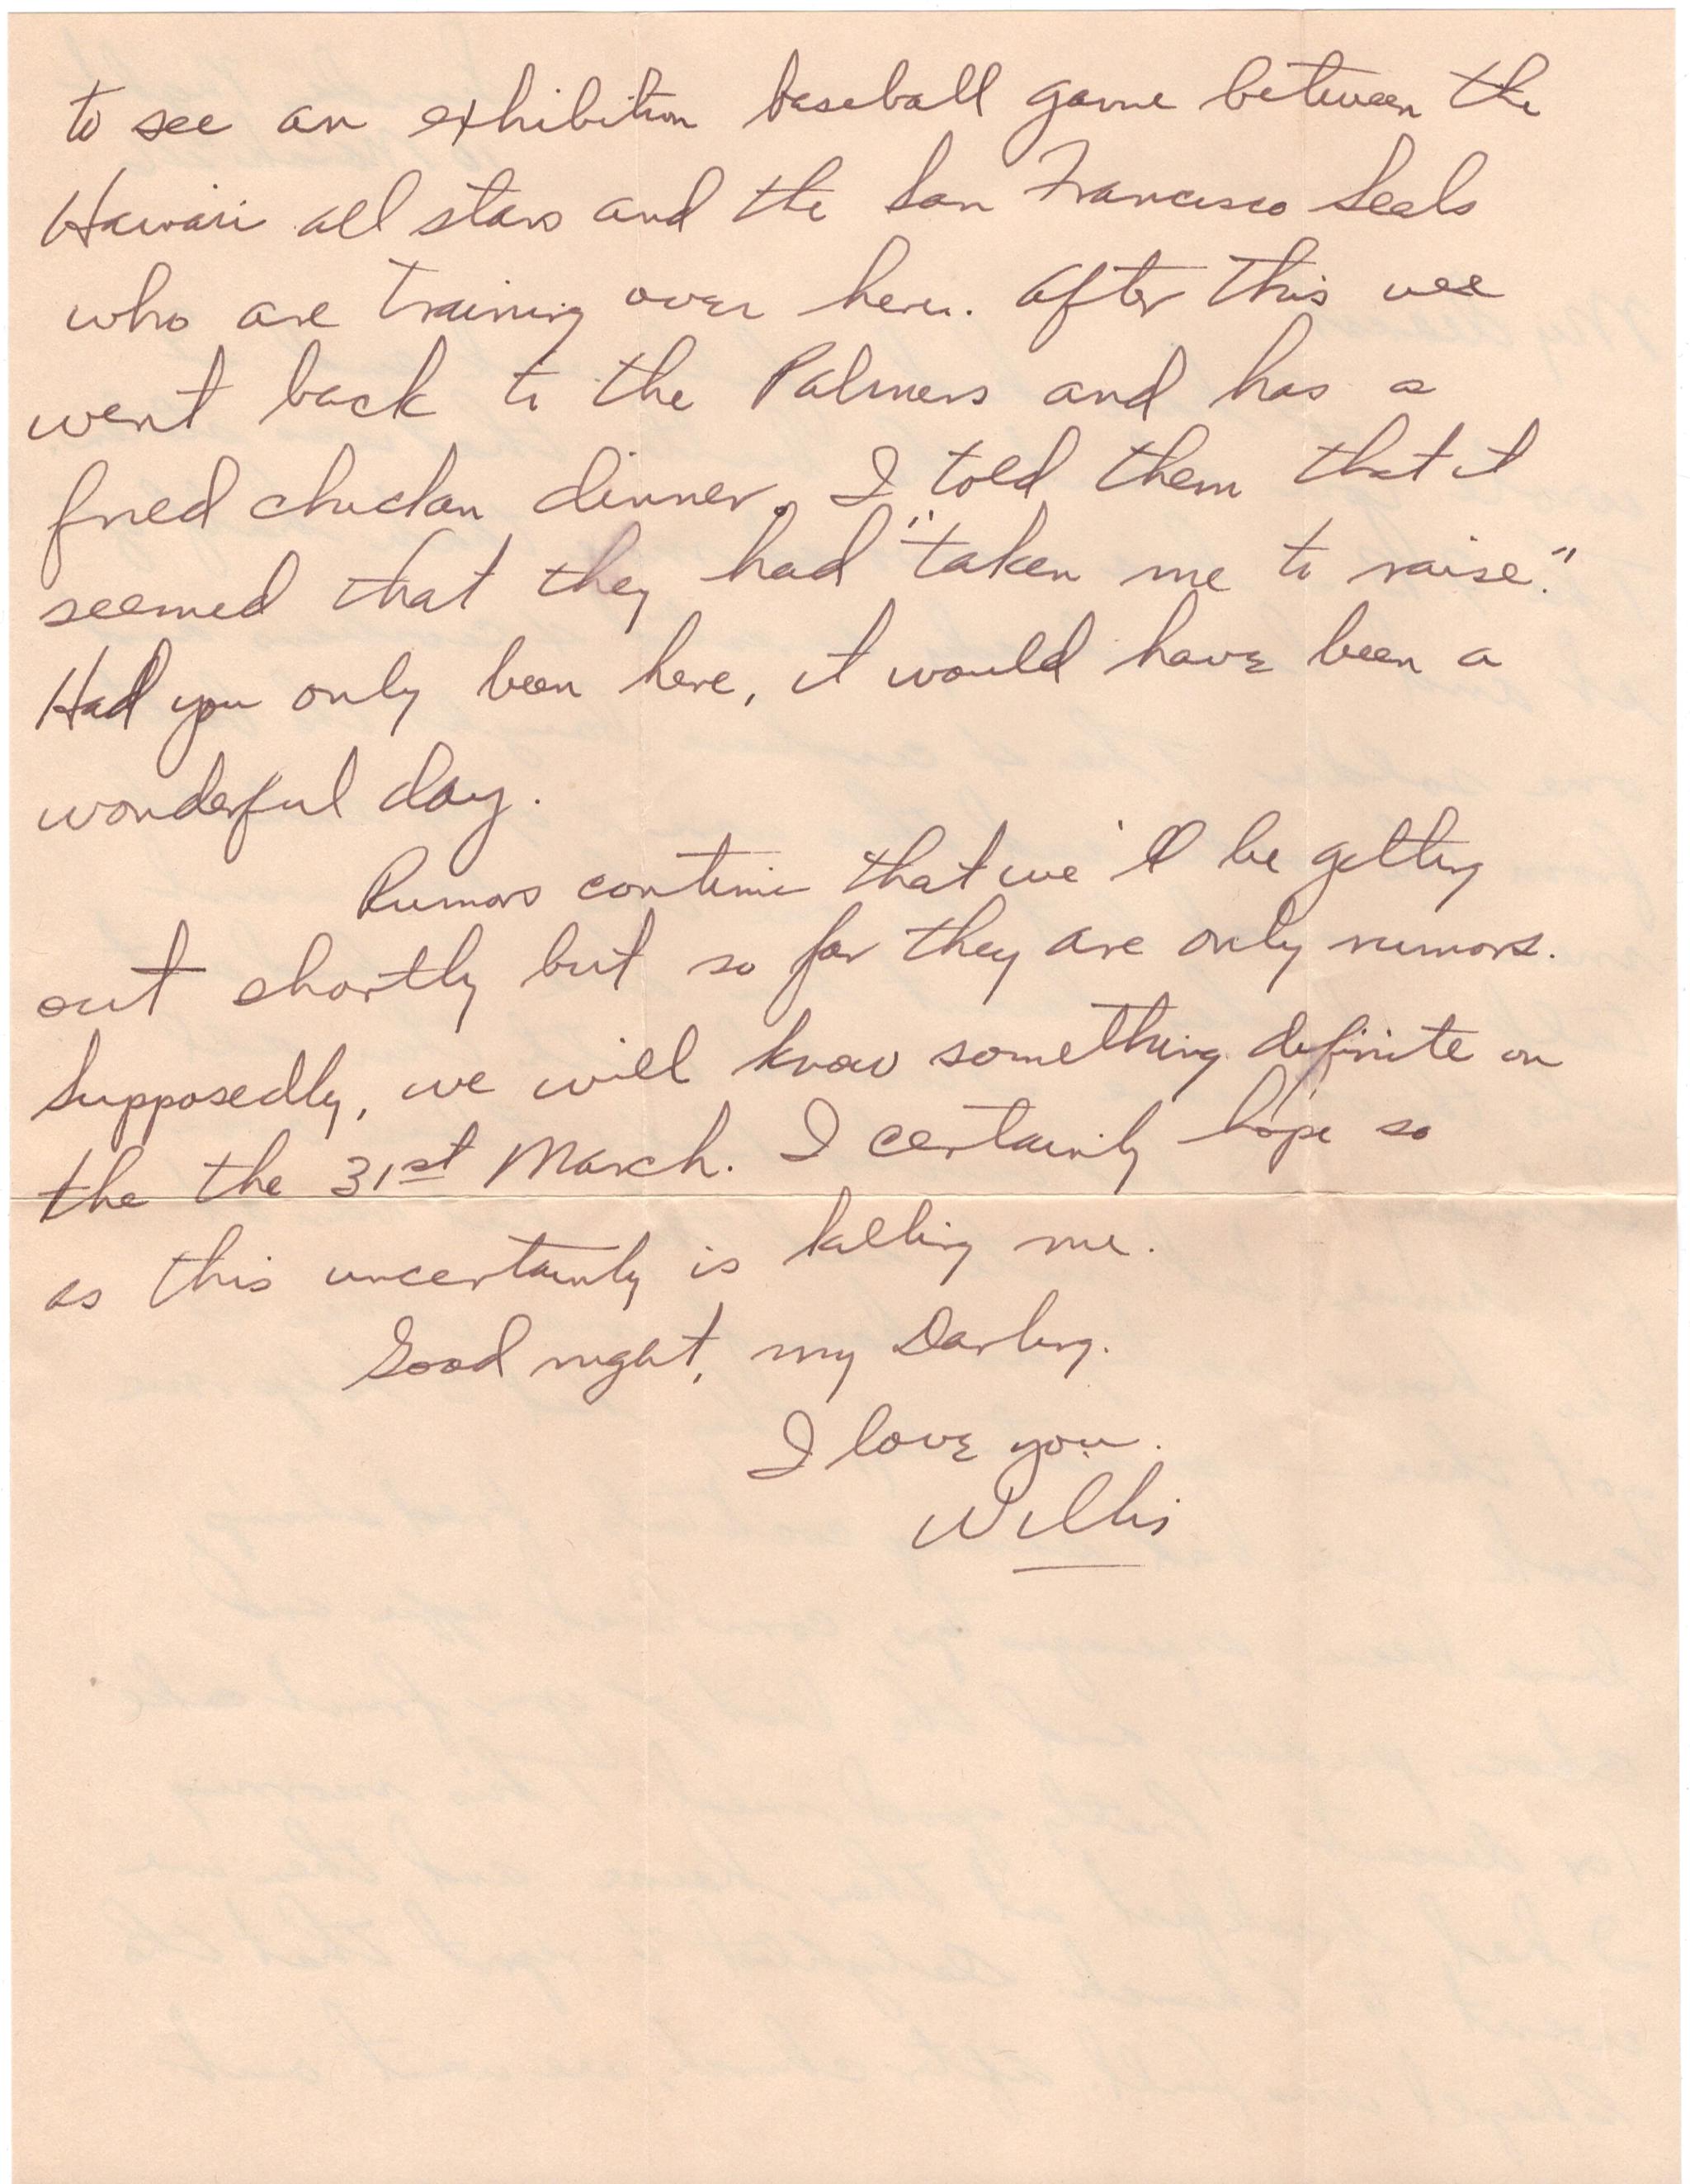 to see an exhibition baseball game between the
Hawaii all stars and the San Francisco Seals
who are training over here. After this we
went back to the Palmers and has a
fried chicken dinner. I told them that it
seemed that they had "taken me to raise."
Had you only been here, it would have been a
wonderful day.
Rumors continue that we'll be getting
out shortly but so far they are only rumors.
Supposedly, we will know something definite on
the the 31st March. I certainly hope so
as this uncertainty is killing me.
Good night, my Darling.
I love you.
Willis